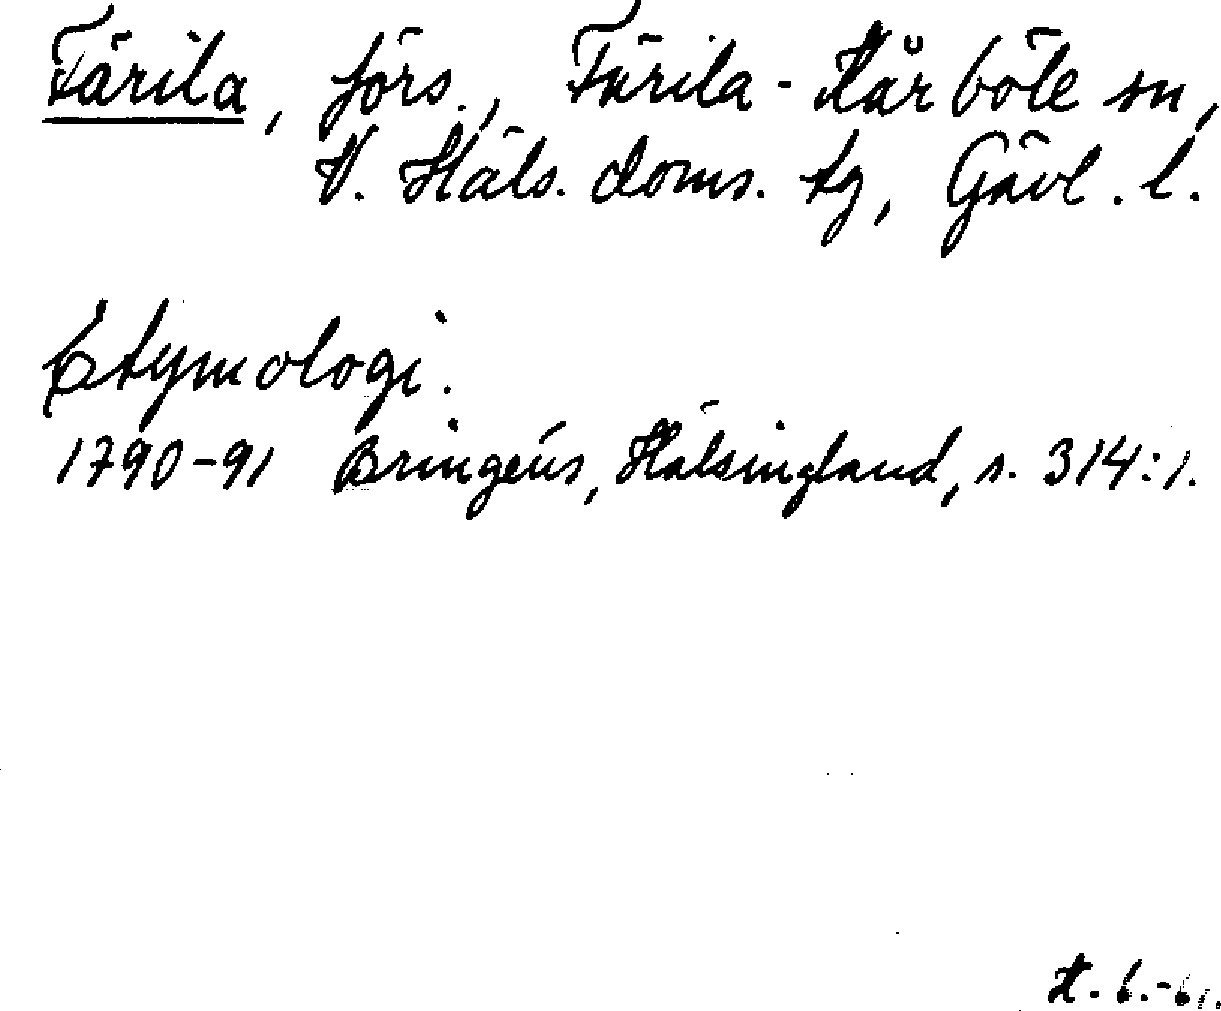 Färila, förs., Färila-Kårböle sn,
V. Häls. doms. tg, Gävl. l.
Etymologi.
1790-91 Bringéus, Hälsingland, s. 314:1.